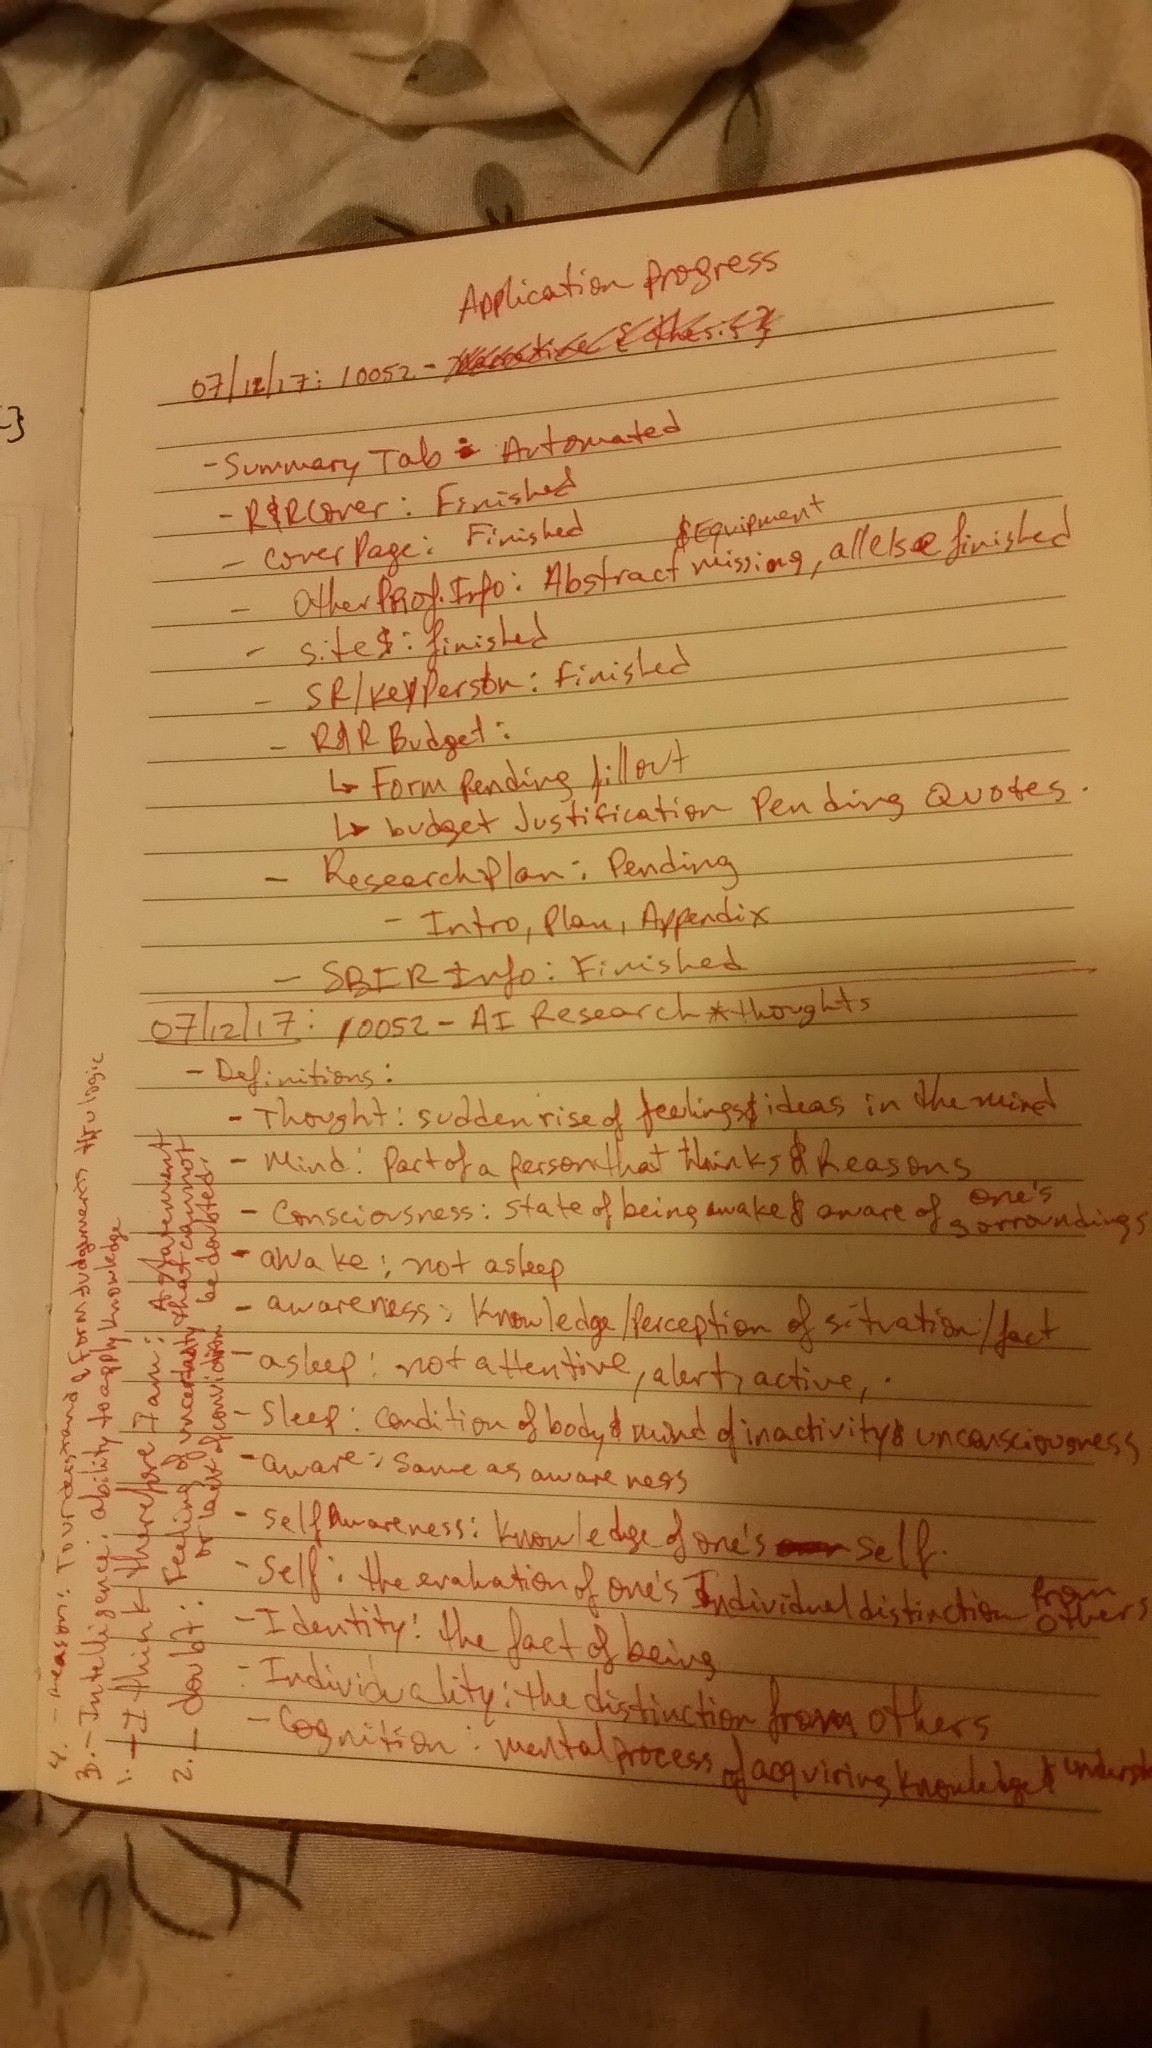 Application Progress
07/12/17: 10052 -
- Summary Tab: Automated
- R&R Cover: Finished
- Cover Page: Finished
& Equipment
- Other Proj. Info: Abstract missing, all else finished
- sites: finished
- SR/key Person: Finished
- R&R Budget:
↳ Form pending fillout
↳ budget Justification Pending Quotes.
- Research Plan: Pending
- Intro, Plan, Appendix
- SBIR Info: Finished
07/12/17: 10052 - AI Research * thoughts
- Definitions:
- Thought: sudden rise of feelings & ideas in the mind
- Mind: part of a person that thinks & Reasons
- Consciousness: state of being awake & aware of one's sorroundings
- awake: not asleep
- awareness: Knowledge/Perception of situation/fact
- asleep: not attentive, alert, active,.
- Sleep: condition of body & mind of inactivity & unconsciousness
- aware: same as awareness
- self Awareness: Knowledge of one's self.
- Self: the evaluation of one's Individual distinction from others
- Identity: the fact of being
- Individuality: the distinction from others
- Cognition: mental process of acquiring knowledge &
1. - I think therefore I am: A statement that cannot be doubted.
2. - doubt: Feeling of uncertainty or lack of conviction
3. - Intelligence: ability to apply knowledge
4. - reason: To understand & Form Judgements thru logic